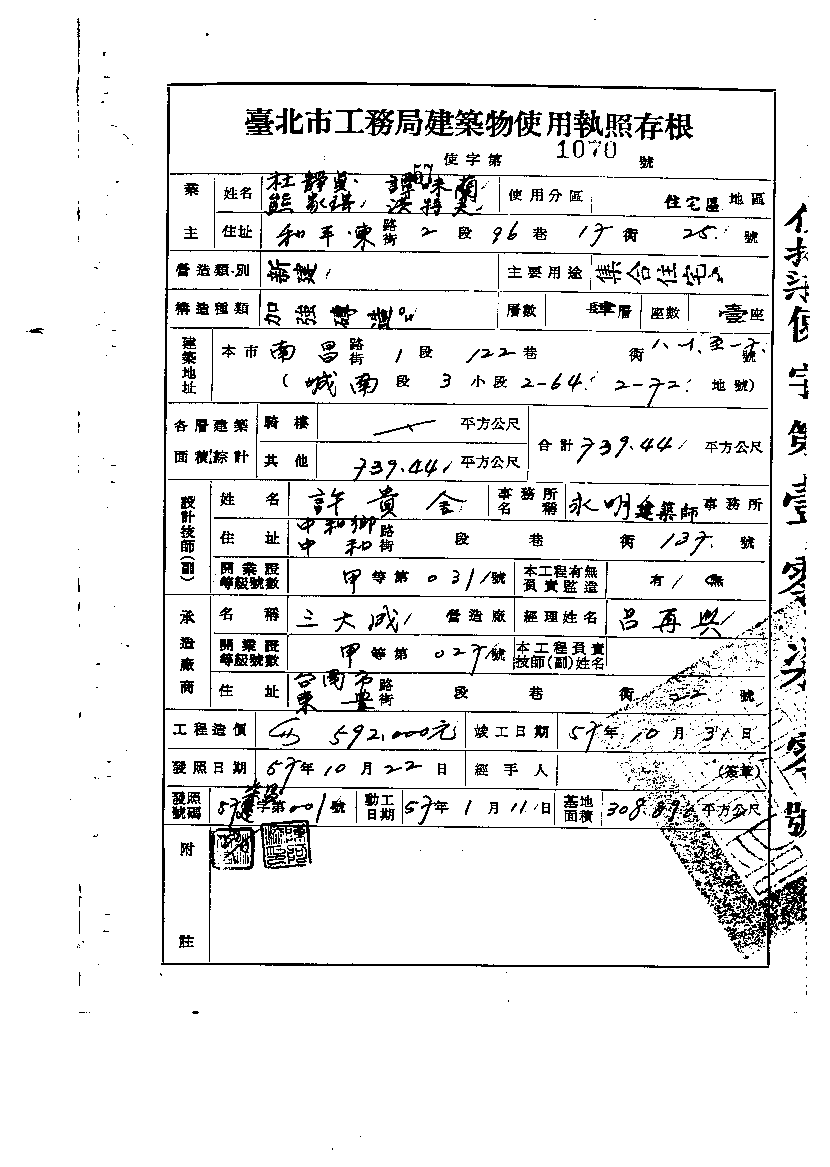 臺北市工務局建築物使用執照存根
57 使字第 1070 號
業主 姓名 杜靜貞 譚味蘭 使用分區 住宅區 地區
熊家琪 洪將夫
住址 和平東 路街 2 段 96 巷 17 衖 25 號
營造類別 新建 主要用途 集合住宅
構造種類 加強磚造 層數 肆層 座數 壹座
建築地址 本市 南昌 路街 1 段 122 巷 衖 號
(城南 段 3 小段 2-64 2-72 地號)
各層建築面積綜計 騎樓 平方公尺 合計 739.44 平方公尺
其他 739.44 平方公尺
設計技師(副) 姓名 許貴金 事務所名稱 永明建築師 事務所
住址 中和鄉中和 路街 段 巷 衖 137 號
開業證等級號數 甲等第 031 號 本工程有無負責監造 有 無
承造廠商 名稱 三大成 營造廠 經理姓名 呂再興
開業證等級號數 甲等第 027 號 本工程負責技師(副)姓名
住址 台南市東豐 路街 段 巷 衖 22 號
工程造價 592,000元 竣工日期 57年10月31日
發照日期 57年10月22日 經手人 (簽章)
發照號碼 57建字第001號 動工日期 57年1月11日 基地面積 308.89 平方公尺
附註
使拾柒使字第壹零柒零號